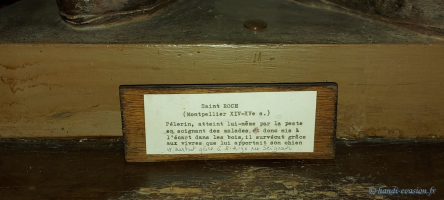 Saint ROCH
(Montpellier XIV-XVe s.)
Pélerin, atteint lui-même par la peste
en soignant des malades, donc mis à
l'écart dans les bois, il survécut grâce
aux vivres que lui apportait son chien
© handi-evasion.fr